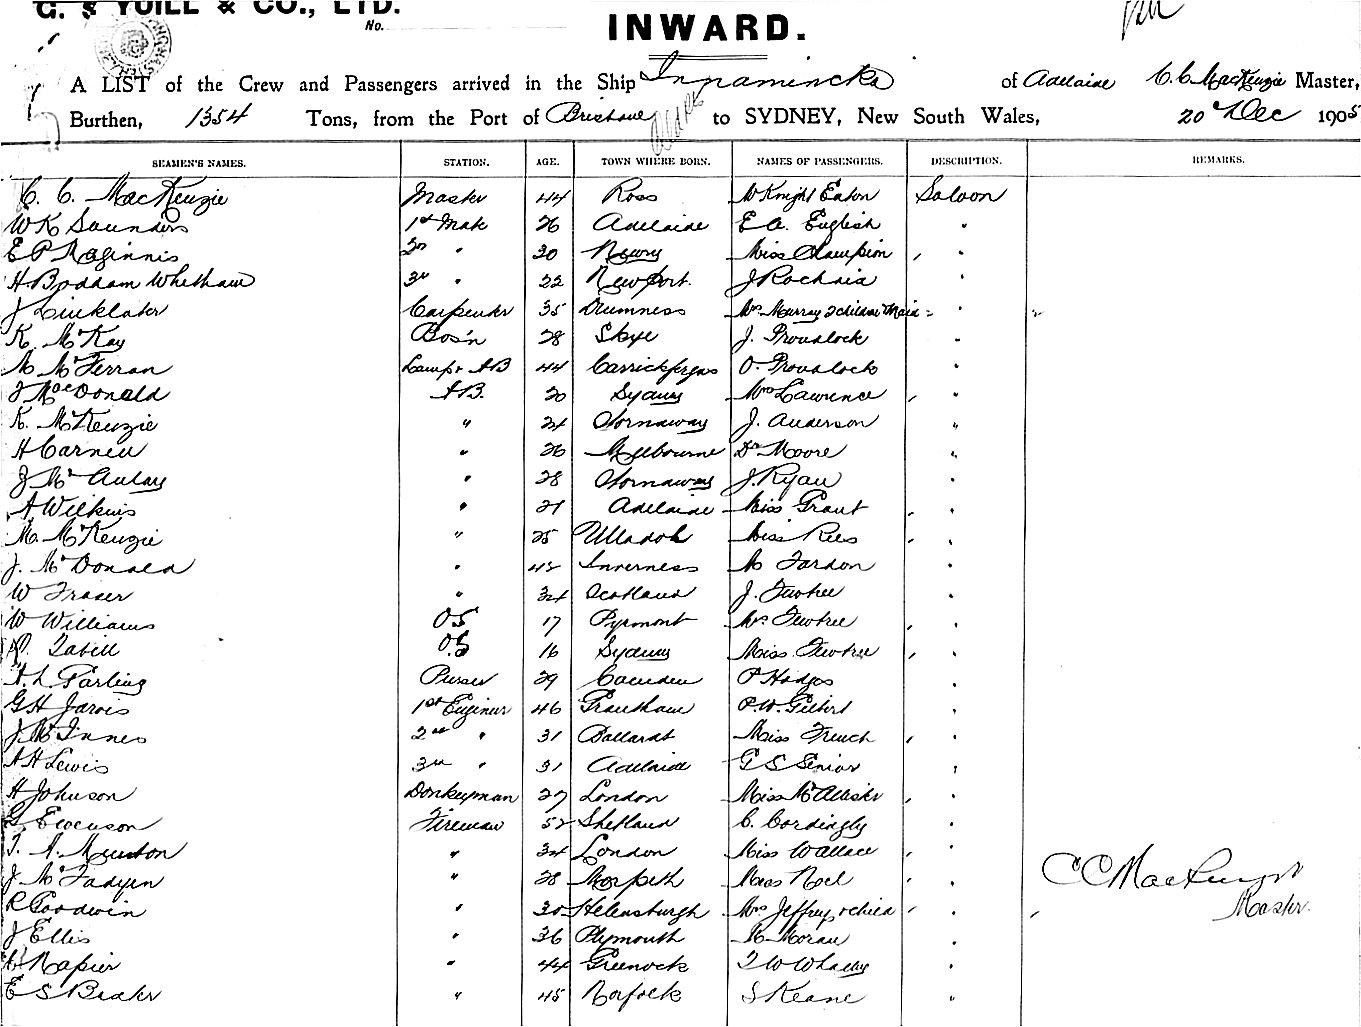 G. S YUILL & CO., LTD.
No.
INWARD.
A LIST of the Crew and Passengers arrived in the Ship Innamincka of Adelaide C. C. MacKenzie Master,
Burthen, 1354 Tons, from the Port of Brisbane to SYDNEY, New South Wales, 20th Dec 1905
SEAMEN'S NAMES. STATION. AGE. TOWN WHERE BORN. NAMES OF PASSENGERS. DESCRIPTION. REMARKS.
C. C. MacKenzie Master 44 Ross McKnight Eaton Saloon
W K Saunders 1st Mate 26 Adelaide E A. English "
E P Maginnis 2nd " 30 Newry Miss Champion "
H Boddam Whetham 3rd " 22 Newport. J "
J Linklater Carpenter 35 Mrs Murray 2 children Maid "
K. McKay Bos'n 28 Skye J. Provolock "
M McFerran Lamps AB 44 Carrickfergus O. Provolock "
J MacDonald AB. 20 Sydney Mrs Lawrence "
K. McKenzie " 24 Stornaway J. Anderson "
H Carnew " 26 Melbourne Dr Moore "
J McAulay " 28 Stornaway J. Ryan "
A Wilkins " 21 Adelaide Miss Grant "
M. McKenzie " 25 Ulladoh Miss Rees "
J. McDonald " 42 Inverness M Fardon "
W Fraser " 34 Scotland J. Fewtree "
W Williams OS 17 Pyrmont Mrs Fewtree "
O.S 16 Sydney Miss Fewtree "
A. L. Parling Purser 29 Camden P Hodges "
G H Jarvis 1st Engineer 46 Grantham P. W. Gilbert "
J McInnes 2nd " 31 Ballarat Miss French "
A H Lewis 3rd " 31 Adelaide G S Senior "
H Johnson Donkeyman 27 London Miss McAllister "
G. Ewenson Fireman 52 Shetland C. Cordingly "
T. A. Munton " 34 London Miss Wallace "
J McFadyen " 28 Morpeth Miss Noel " C C MacKenzie
R Goodwin " 30 Helensburgh Mrs Jeffrey & child " Master.
J Ellis " 36 Plymouth M Moran "
H Napier " 44 Greenock T W Whalley "
E S Beaker " 45 Norfolk S Keane "